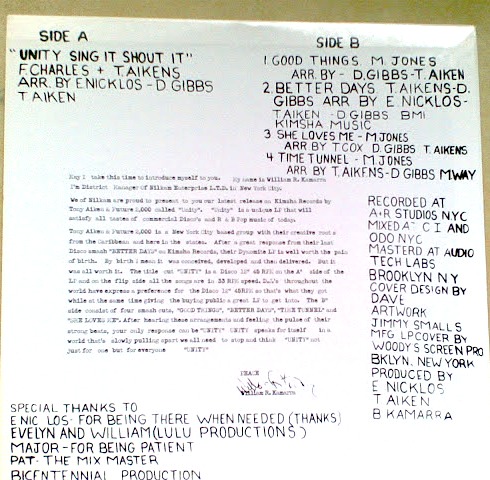 SIDE A
"UNITY SING IT SHOUT IT"
F. CHARLES + T. AIKENS
ARR. BY E NICKLOS - D GIBBS
T AIKEN
SIDE B
1. GOOD THINGS. M. JONES
ARR. BY - D. GIBBS - T. AIKEN
2. BETTER DAYS. T. AIKENS - D.
GIBBS ARR BY E. NICKLOS -
TAIKEN - D GIBBS BMI
KIMSHA MUSIC
3 SHE LOVES ME - M JONES
ARR BY T COX D. GIBBS T. AIKENS
4 TIME TUNNEL - M JONES
ARR BY T. AIKENS - D GIBBS MWAY
May I take this time to introduce myself to you. My name is William R. Kamarra
I'm District Manager of Nilkam Enterprise L.T.D. in New York City.
We of Nilkam are proud to present to you our latest release on Kimsha Records by
Tony Aiken & Future 2,000 called "Unity". "Unity" is a unique LP that will
satisfy all tastes of commercial Disco's and R & B Pop music of today.
Tony Aiken & Future 2,000 is a New York City based group with their creative roots
from the Caribbean and here in the states. After a great response from their last
Disco smash "BETTER DAYS" on Kimsha Records, their Dynamite LP is well worth the pain
of birth. By birth I mean it was conceived, developed and then delivered. But it
was all worth it. The title cut "UNITY" is a Disco 12" 45 RPM on the A" side of the
LP and on the flip side all the songs are in 33 RPM speed. DJ's throughout the
world have express a preference for the Disco 12" 45 RPM so that's what they got
while at the same time giving the buying public a great LP to get into. The B"
side consist of four smash cuts, "GOOD THINGS", "BETTER DAYS", "TIME TUNNEL" and
"SHE LOVES ME". After hearing these arrangements and feeling the pulse of their
strong beats, your only response can be "UNITY" UNITY speaks for itself in a
world that's slowly pulling apart we all need to stop and think "UNITY" not
just for one but for everyone "UNITY"
PEACE
William R. Kamarra
RECORDED AT
A+R STUDIOS NYC
MIXED AT C I AND
ODO NYC
MASTERD AT AUDIO
TECH LABS
BROOKLYN NY
COVER DESIGN BY
DAVE
ARTWORK
JIMMY SMALLS
MFG LPCOVER BY
WOODY'S SCREEN PRO
BKLYN. NEW YORK
PRODUCED BY
E NICKLOS
T AIKEN
B KAMARRA
SPECIAL THANKS TO
ENIC LOS- FOR BEING THERE WHEN NEEDED (THANKS)
EVELYN AND WILLIAM (LULU PRODUCTIONS)
MAJOR - FOR BEING PATIENT
PAT- THE MIX MASTER
BICENTENNIAL PRODUCTION